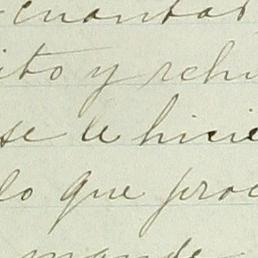 cuantas
ito y rehu
se le hicie
lo que proc
mande